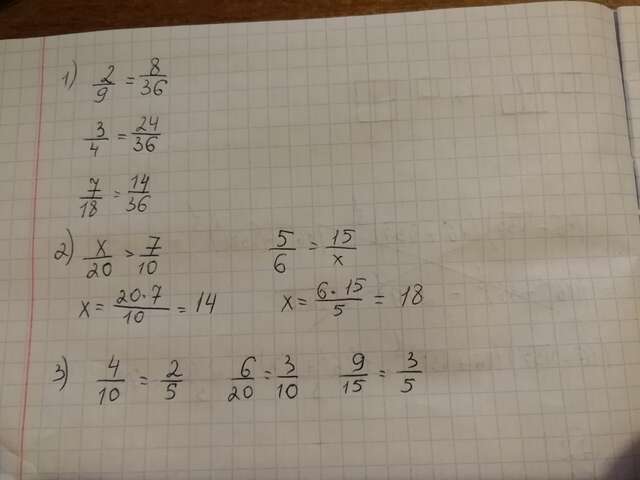 1) 2/9 = 8/36
3/4 = 24/36
7/18 = 14/36
2) x/20 > 7/10 5/6 = 15/x
x = 20·7/10 = 14 x = 6·15/5 = 18
3) 4/10 = 2/5 6/20 = 3/10 9/15 = 3/5